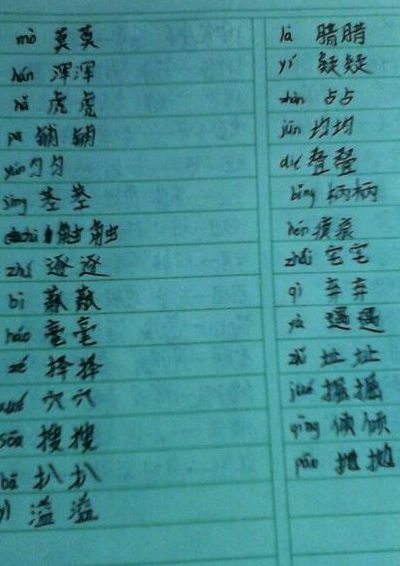 mò 莫莫
hún 浑浑
hǔ 虎虎
铺铺
yún 匀匀
jīng 茎茎
zhú 逐逐
bì 蔽蔽
háo 毫毫
zé 择择
xué 穴穴
sōu 搜搜
bā 扒扒
yì 溢溢
là 腊腊
yí 疑疑
占占
jūn 均均
dié 叠叠
bǐng 柄柄
hén 痕痕
zhái 宅宅
qì 弃弃
yù 遇遇
zhǐ 址址
jué 掘掘
qīng 倾倾
pāo 抛抛